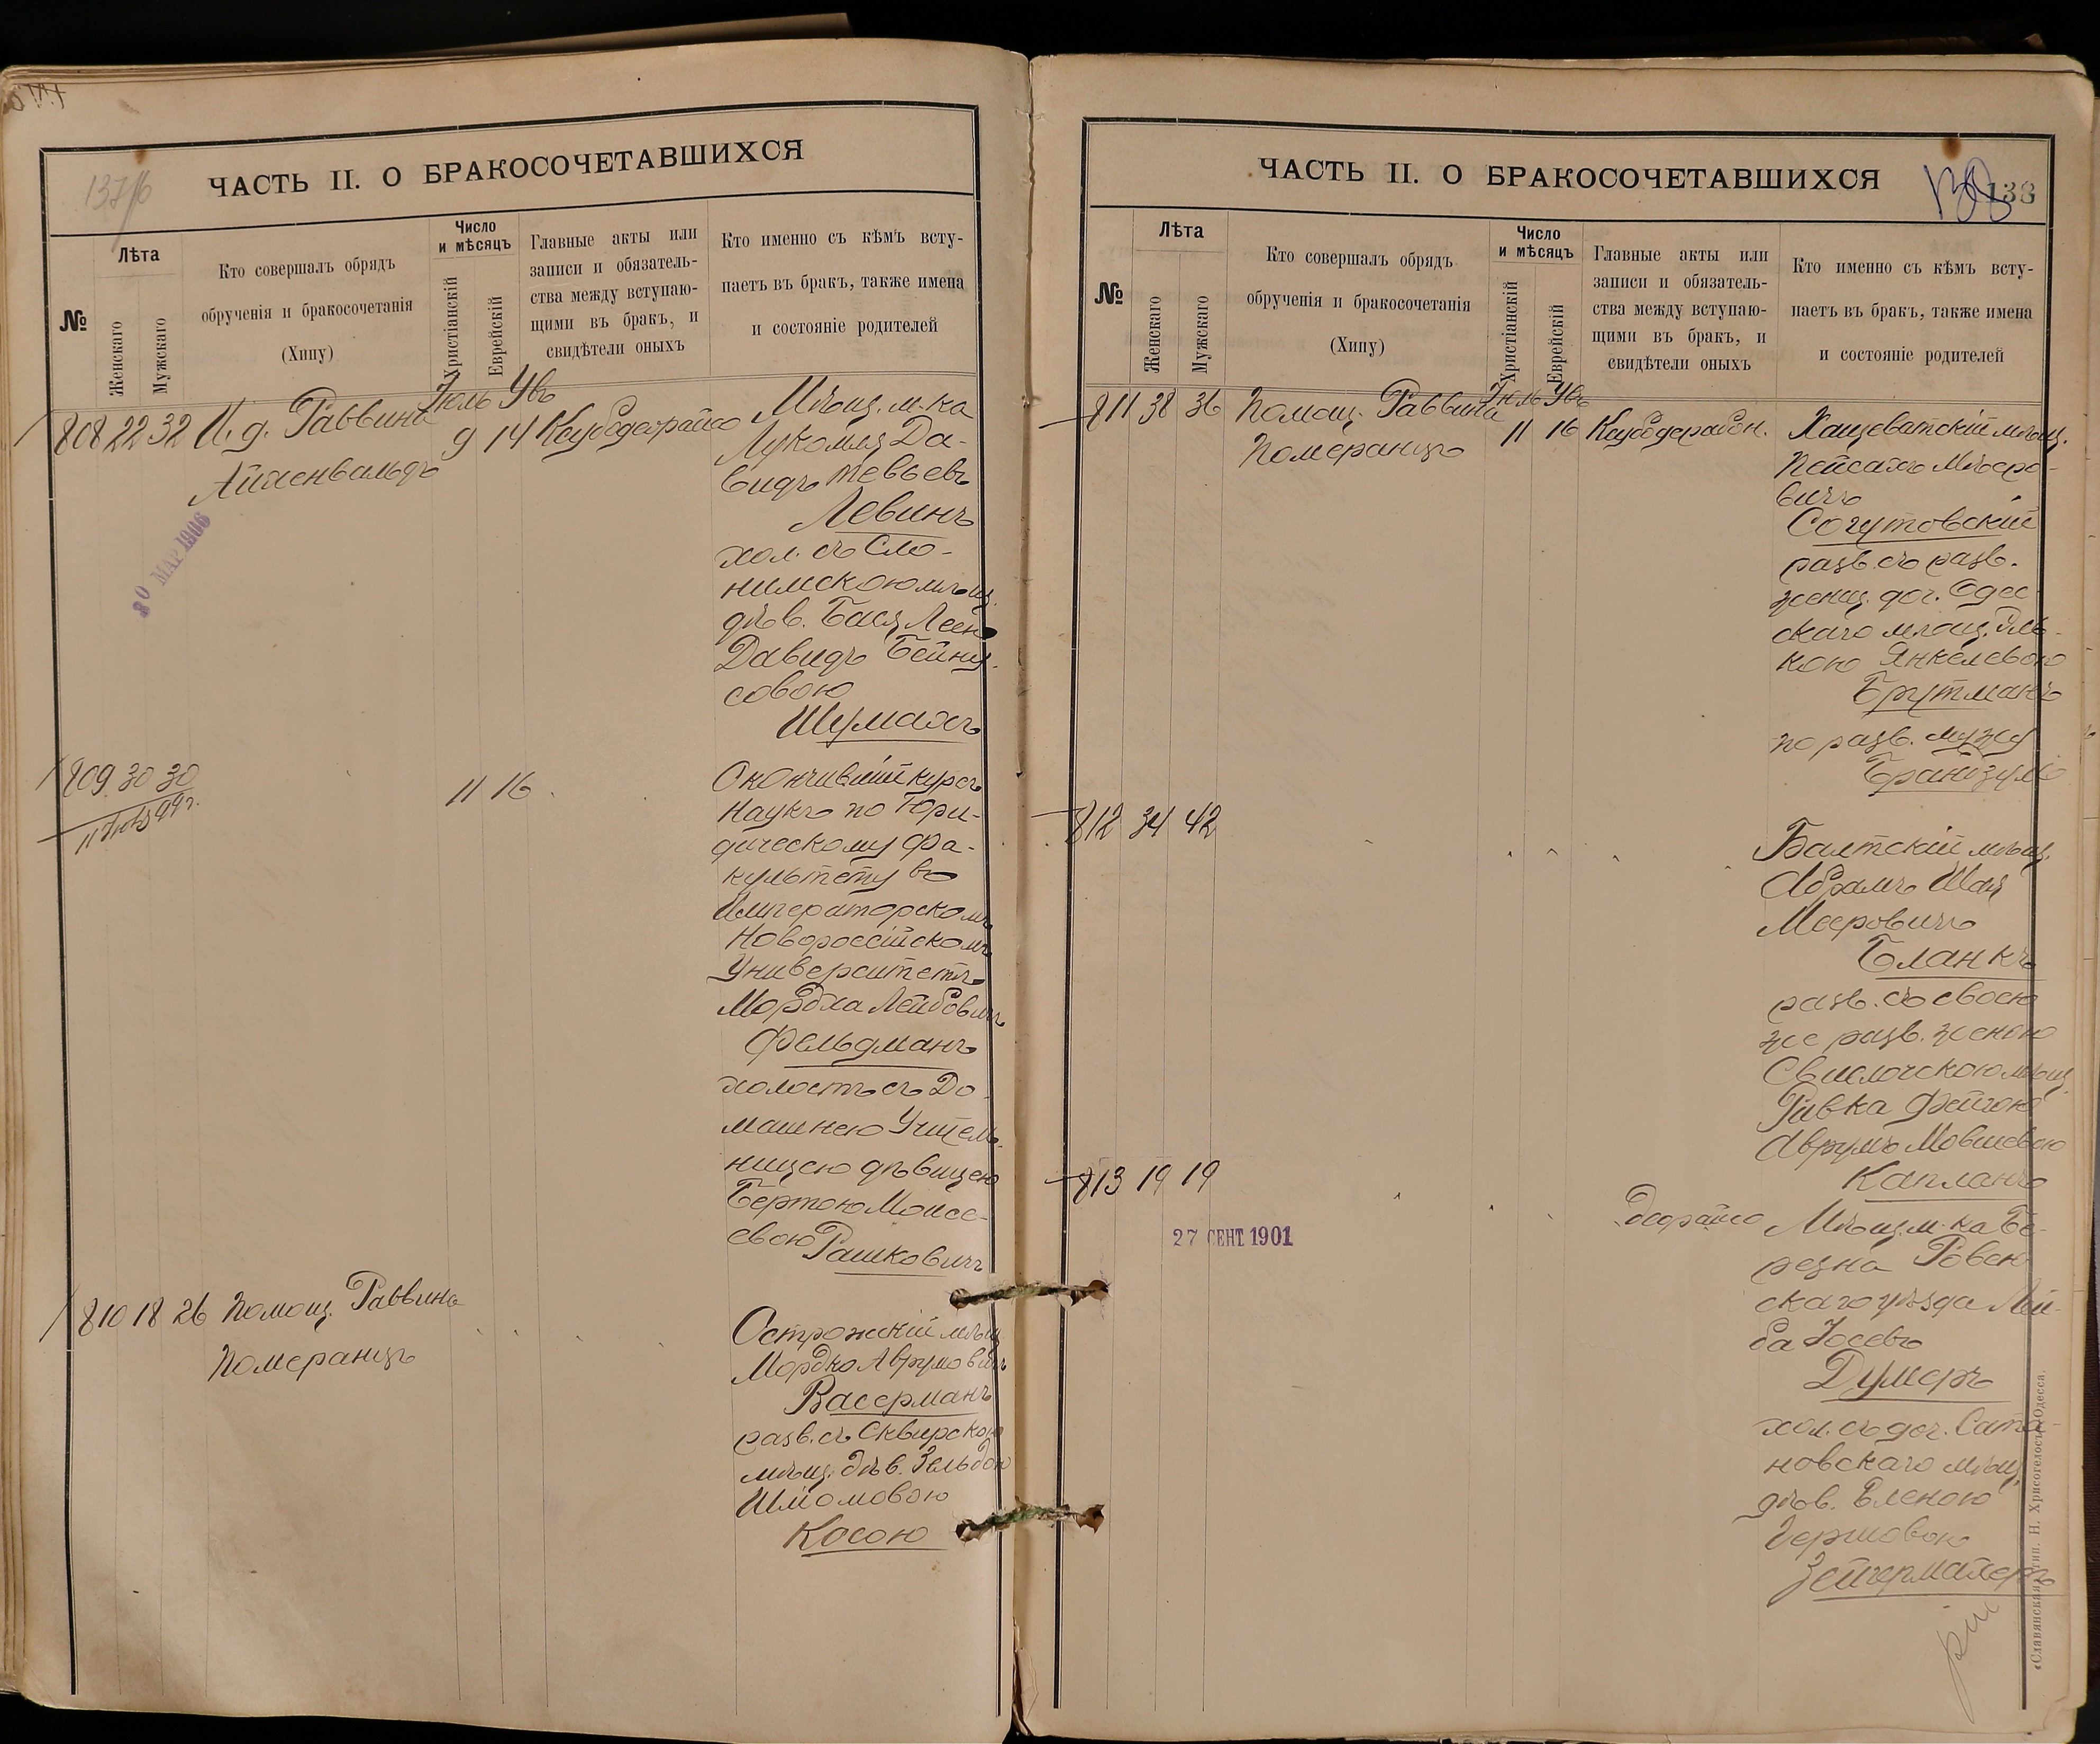 137/б
ЧАСТЬ II. О БРАКОСОЧЕТАВШИХСЯ
№
Лѣта
Женскаго
Мужскаго
Кто совершалъ обрядъ
обрученія и бракосочетанія
(Хипу)
Число
и мѣсяцъ
Христіанскій
Еврейскій
Главные акты или
записи и обязатель-
ства между вступаю-
щими въ бракъ, и
свидѣтели оныхъ
Кто именно съ кѣмъ всту-
паетъ въ бракъ, также имена
и состояніе родителей
Іюль Увъ
808 22 32 И. д. Раввина
Айхенвальдъ
9 14 Ксубодеорайсо
30 МАР 1906
Мѣщ. м-ка
Лукомля Да-
видъ Тевьевъ
Левинъ
хол. съ Сло-
нимскою мѣщ.
дѣв. Бася Леею
Давидъ Бейну-
совою
Шумахъ
809 30 30
11 16
Окончившій курсъ
Наукъ по Юри-
дическому Фа-
культету въ
Императорскомъ
Новороссійскомъ
Университетѣ
Мордха Лейбовъ
Фельдманъ
холостъ съ До-
машнею Учитель-
ницею дѣвицею
Бертою Моисе-
евою Рашковичъ
810 18 26 Помощ. Раввина
Померанцъ
Острожскій мѣщ.
Мордко Аврумовичъ
Васерманъ
разв. съ Сквирскою
мѣщ. дѣв. Зельдою
Шломовою
Косою
ЧАСТЬ II. О БРАКОСОЧЕТАВШИХСЯ
138
№
Лѣта
Женскаго
Мужскаго
Кто совершалъ обрядъ
обрученія и бракосочетанія
(Хипу)
Число
и мѣсяцъ
Христіанскій
Еврейскій
Главные акты или
записи и обязатель-
ства между вступаю-
щими въ бракъ, и
свидѣтели оныхъ
Кто именно съ кѣмъ всту-
паетъ въ бракъ, также имена
и состояніе родителей
Іюль Увъ
811 38 36 Помощ. Раввина
Померанцъ
11 16 Ксубодерабон.
Хащеватскій мѣщ.
Пейсахъ Мѣеро-
вичъ
Согутовскій
разв. съ разв.
женщ. доч. Одес-
скаго мѣщ. Эль-
кою Янкелевою
Брутманъ
по разв. мужу
812 34 42
Балтскій мѣщ.
Абрамъ Шая
Мееровичъ
Бланкъ
разв. съ своею
же разв. женою
Свислочскою мѣщ.
Ривка Фейгою
Аврумъ Мовшевою
Капланъ
813 19 19
27 СЕНТ 1901
деорайсо
Мѣщ. м-ка Бе-
резна Ровен-
скаго уѣзда Лей-
ба Іосевъ
Думеръ
хол. съ доч. Сата-
новскаго мѣщ.
дѣв. Еленою
Гершовою
Зейгермахеръ
«Славянская» тип. Н. Хрисогелосъ, Одесса.